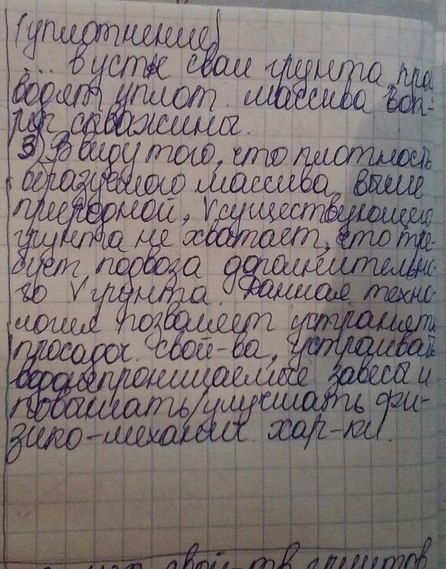 (уплотнение)
... в устье сваи грунта, про
водят уплот. массива вок-
руг скважины.
3) Ввиду того, что плотность
образуемого массива выше
природной, V существующего
грунта не хватает, что тре
бует подвоза дополнительно
го V грунта. Данная техно-
логия позволяет устранять
просадоч. свой-ва, устраивать
водонепроницаемые завесы и
повышать/улучшать фи-
зико-механич. хар-ки.
свой-тв грунтов